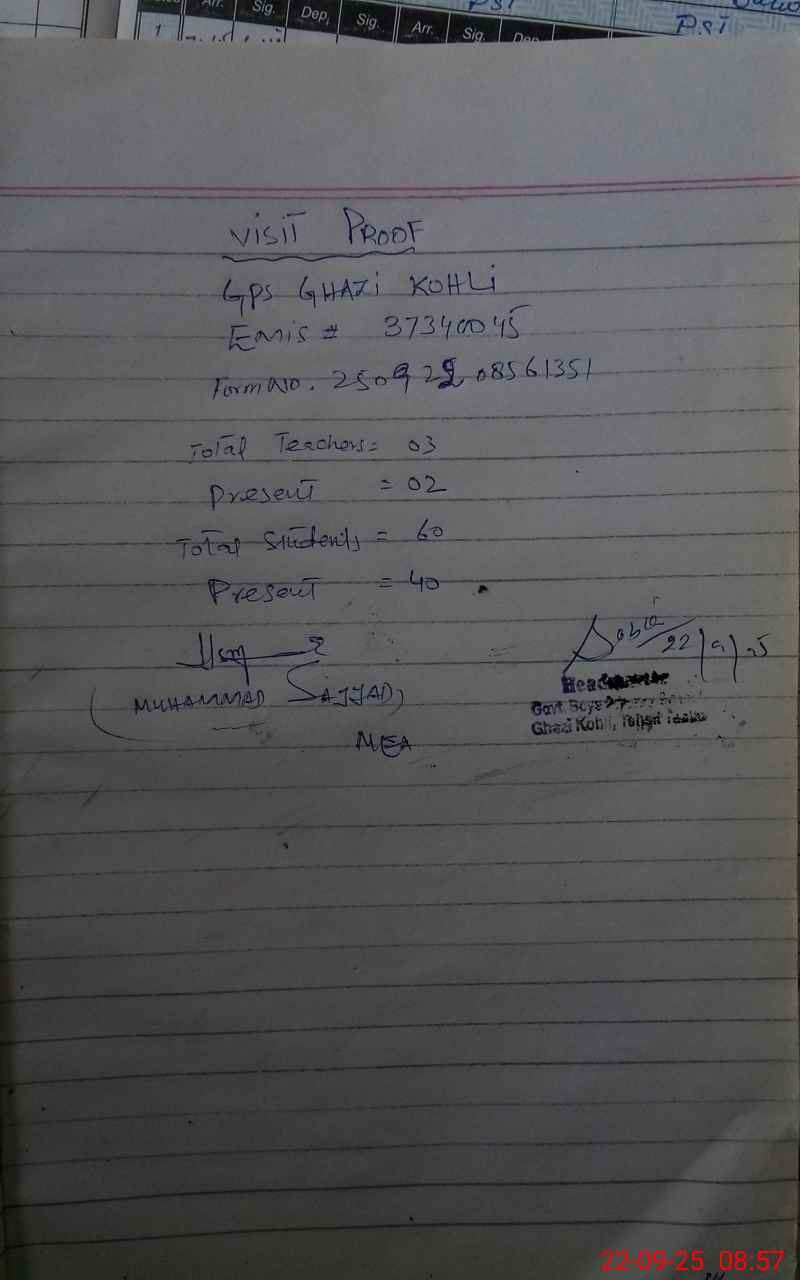 Arr. Sig. Dep. Sig. Arr. Sig. Dep
PST
1
PST
VISIT PROOF
GPS GHAZI KOHLI
EMIS # 37340045
Form No. 25092208561351
Total Teachers = 03
Present = 02
Total Students = 60
Present = 40
22/9/25
(MUHAMMAD SAJJAD)
MEA
Govt. Boys
Ghazi Kohli,
22-09-25 08:57